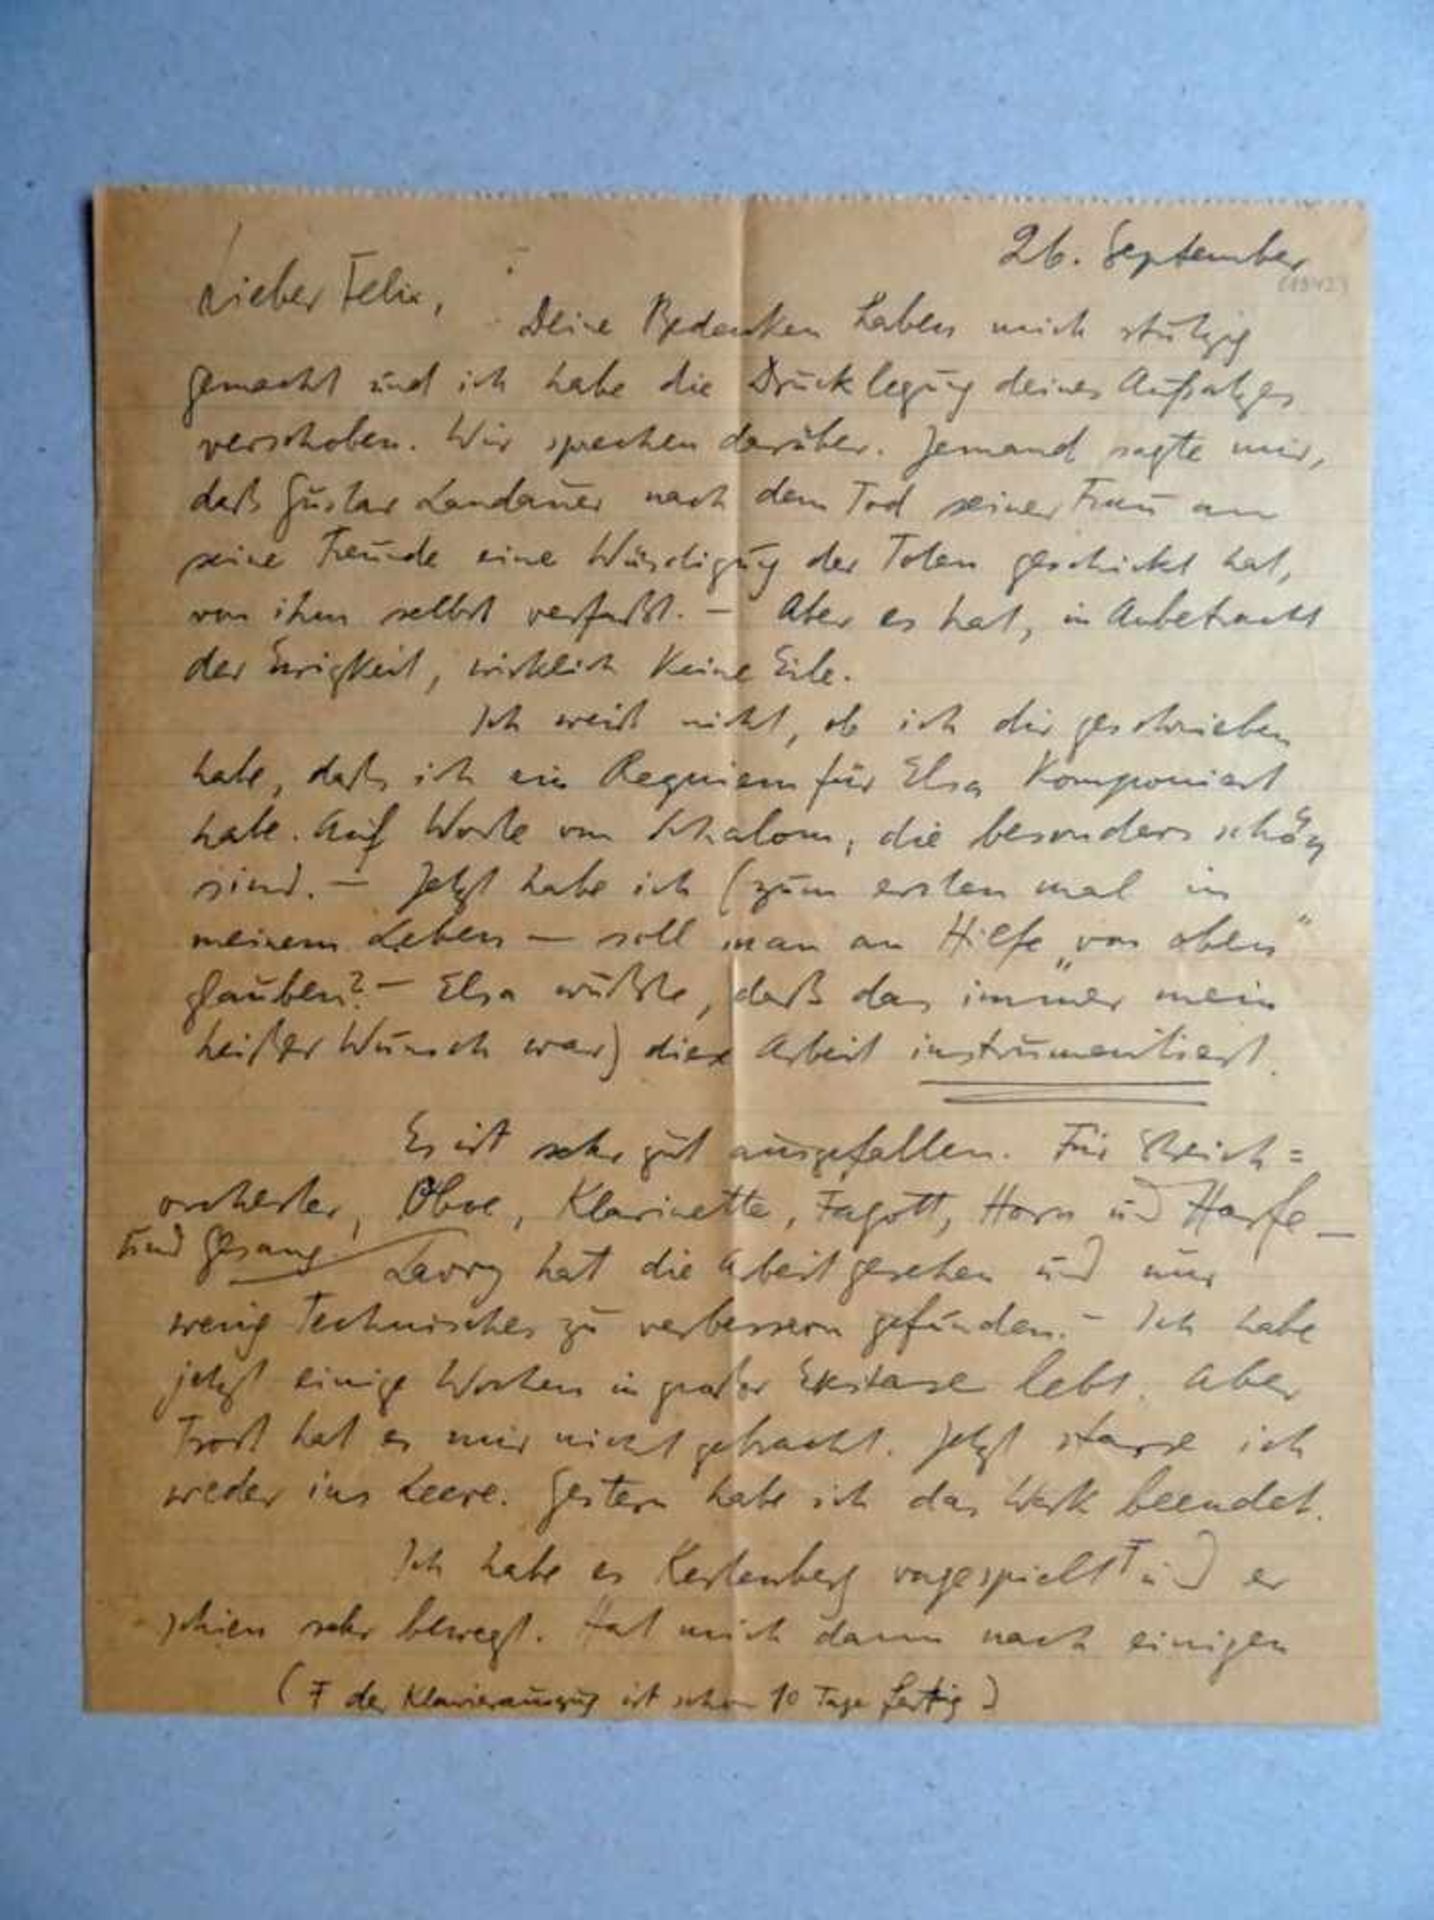 26. September
(1942)
Lieber Felix,
Deine Bedenken haben mich stutzig
gemacht und ich habe die Drucklegung deines Aufsatzes
verschoben. Wir sprechen darüber. Jemand sagte mir,
daß Gustav Landauer nach dem Tod seiner Frau an
seine Freunde eine Würdigung der Toten geschickt hat,
von ihm selbst verfaßt. – Aber es hat, in Anbetracht
der Ewigkeit, wirklich keine Eile.
Ich weiß nicht, ob ich dir geschrieben
habe, daß ich ein Requiem für Elsa komponiert
habe. Auf Worte von Schalom, die besonders schön
sind. – Jetzt habe ich (zum ersten mal in
meinem Leben – soll man an Hilfe „von oben"
glauben? – Elsa wußte, daß das immer mein
heißer Wunsch war) diese Arbeit instrumentiert.
Es ist sehr gut ausgefallen. Für Streich=
orchester, Oboe, Klarinette, Fagott, Horn und Harfe –
und Gesang. Lavry hat die Arbeit gesehen und nur
wenig Technisches zu verbessern gefunden. – Ich habe
jetzt einige Wochen in großer Ekstase lebt. Aber
Trost hat es mir nicht gebracht. Jetzt starre ich
wieder ins Leere. Gestern habe ich das Werk beendet.
Ich habe es Kestenberg vorgespielt Ŧ und er
schien sehr bewegt. Hat mich dann nach einigen
(Ŧ der Klavierauszug ist schon 10 Tage fertig)